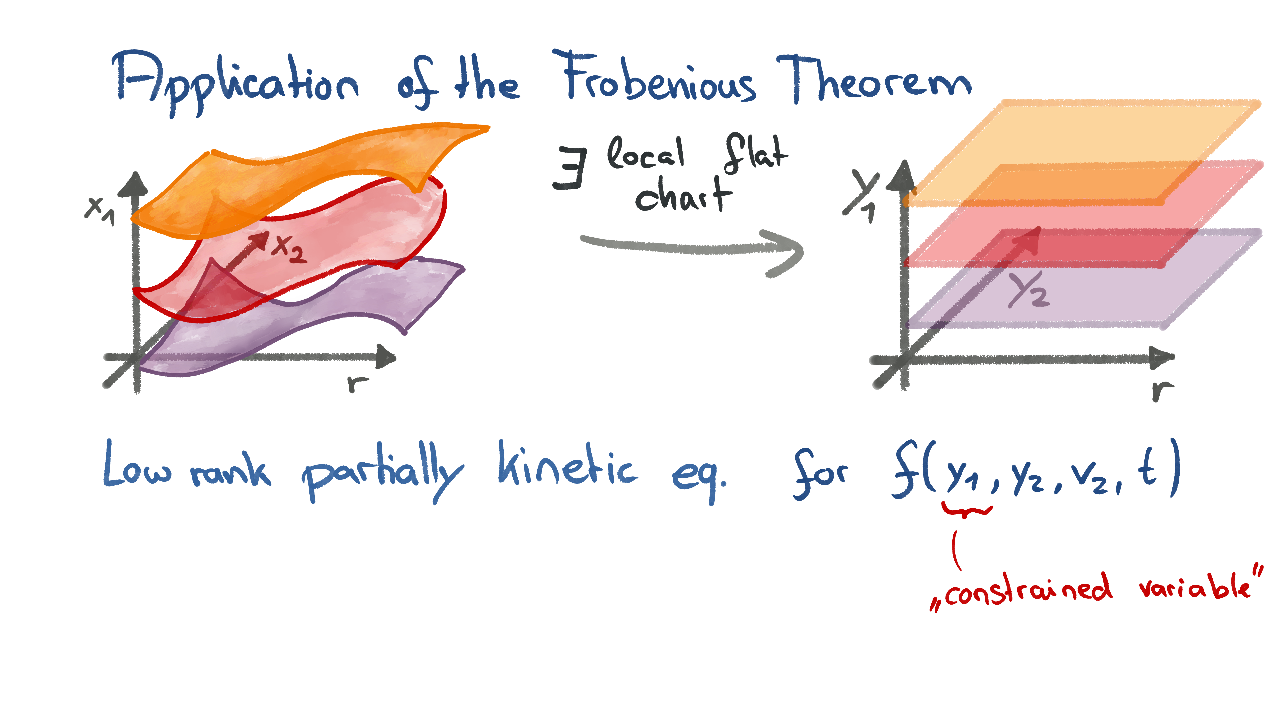 Application of the Frobenious Theorem
∃ local flat
chart
x₁
x₂
r
y₁
y₂
r
Low rank partially kinetic eq. for f(y₁, y₂, v₂, t)
„constrained variable"